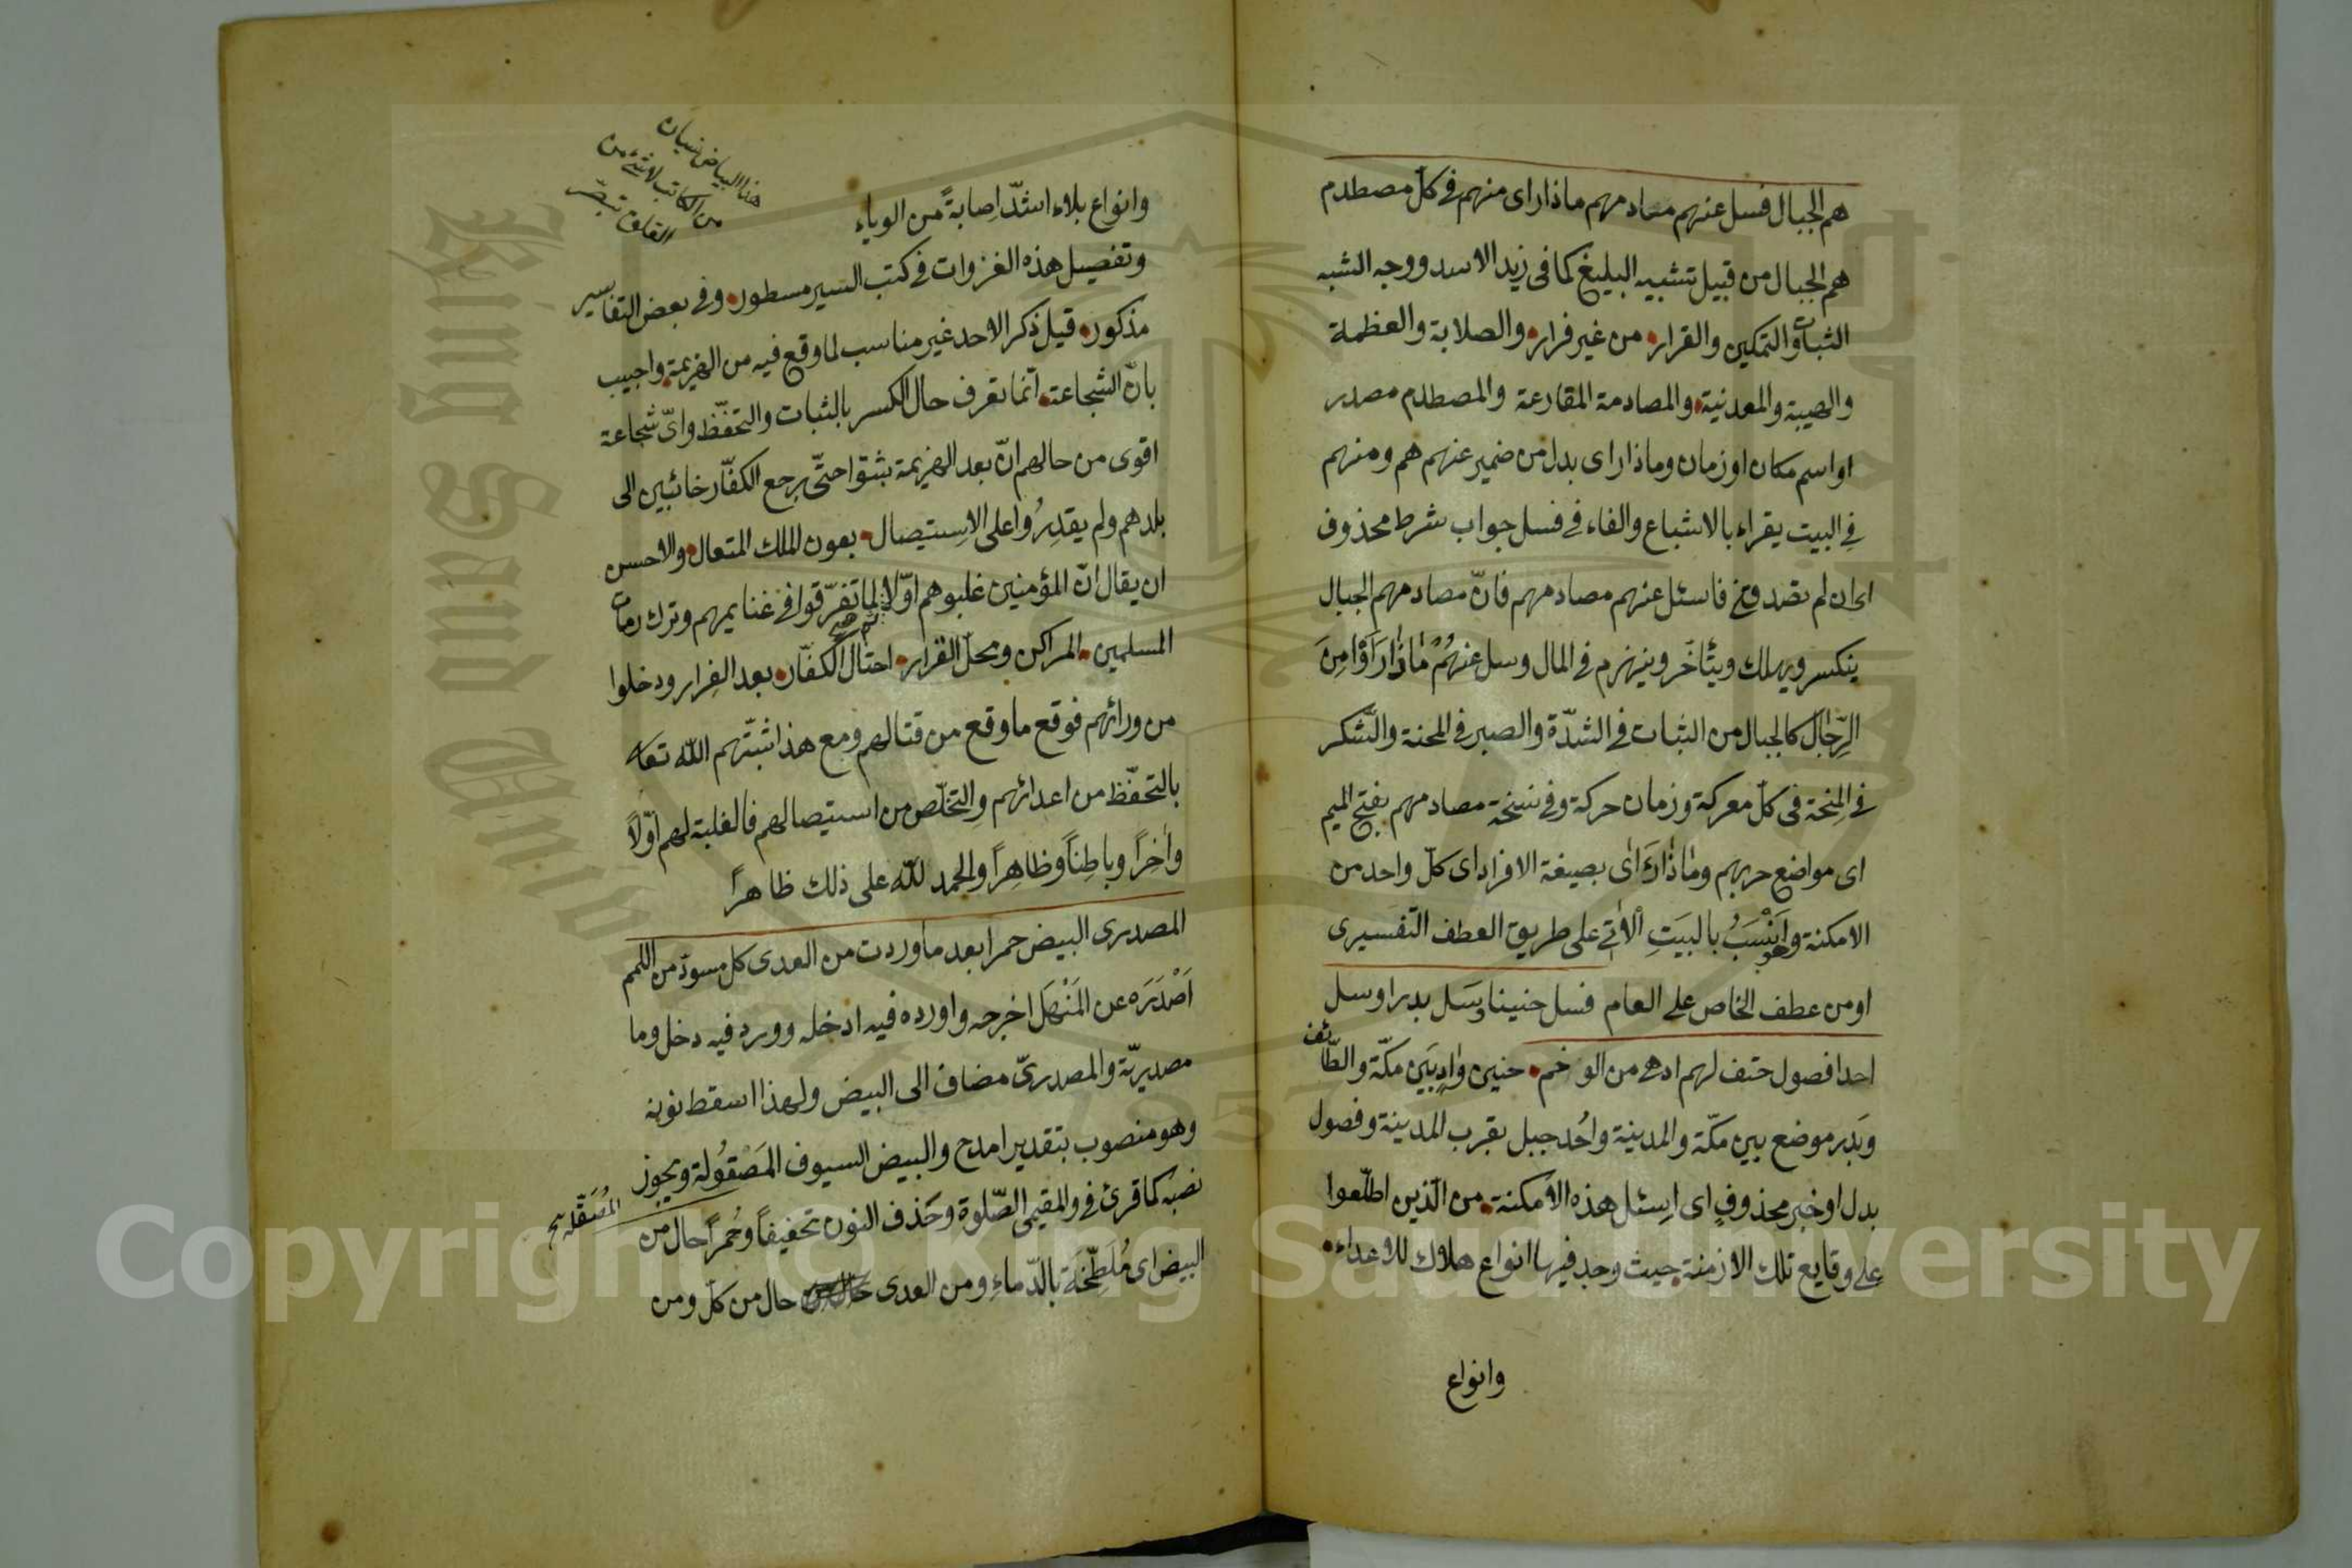 هم الجبال فسل عنهم مصادمهم ماذا راى منهم فى كلّ مصطدم
هم الجبال من قبيل تشبيه البليغ كما فى زيد الاسد ووجه الشبه
الثبات والتمكين والقرار من غير فرار والصلابة والعظمة
والهيبة والمعدنية والمصادمة المقارعة والمصطدم مصدر
او اسم مكان او زمان وماذا راى بدل من ضمير عنهم هم ومنهم
فى البيت يقراء بالاشباع والفاء فى فسل جواب شرط محذوف
اى ان لم تصدقنى فاسئل عنهم مصادمهم فانّ مصادمهم الجبال
ينكسر ويهلك ويتأخّر وينهزم فى المال وسل عنهُمْ مَاذَا رَاَوْا مِنَ
الرِّجَال كالجبال من الثبات فى الشدّة والصبر فى المحنة والشكر
فى المِنحة فى كلّ معركة وزمان حركة وفى نسخة مصادمهم بفتح الميم
اى مواضع حربهم ومَاذَا رَاَى بصيغة الافراد اى كلّ واحد من
الامكنة وهو اَنْسَبُ بالبَيتِ الْاٰتى على طريق العطف التّفسيرى
او من عطف الخاص على العام فسل حنينا وسَل بدرا وسل
احدا فصول حتف لهم ادهى من الوخم حنين وادٍ بَيَن مكّة والطّائف
وبَدر موضع بين مكّة والمدينة واُحُد جبل بقرب المدينة وفصول
بدل او خبر محذوفٍ اى اِسئل هذه الامكنة من الّذين اطلّعوا
على وقايع تلك الازمنة حيث وجد فيها انواع هلاك للاعداء
وانواع
وانواع بلاء اشدّ اِصابةً من الوباء
هذا البياض نسيان
من الكاتب لا شئ من
وتفصيل هذه الغزوات فى كتب السير مسطور وفى بعض التفاسير
مذكور قيل ذكر الاحد غير مناسب لما وقع فيه من الهزيمة واجيب
بانّ الشجاعة انّما تعرف حال الكسر بالثبات والتحفّظ واىّ شجاعة
اقوى من حالهم انّ بعد الهزيمة بثقوا حتّى يرجع الكفّار خائبين الى
بلدهم ولم يقدِرُوا على الاِستيصال بعون الملك المتعال والاحسن
ان يقال انّ المؤمنين غلبوهم اوّلا ثم لما تفرّقوا فى غنايمهم وترك رمات
المسلمين المراكن ومحلّ القرار احتال الكفّار بعد الفِرار ودخلوا
من ورائهم فوقع ما وقع من قتالهم ومع هذا ثبّتهم الله تعا
بالتحفّظ من اعدائهم والتخلّص من استيصالهم فالغلبة لهم اوّلاً
وآخِرًا وباطِناً وظاهِرًا والحمد للّه على ذلك ظاهرًا
المصدرى البيض حمرا بعد ما وردت من العدى كل مسودّ من اللمم
اَصْدَرَه عن المَنْهَل اخرجه واورده فيه ادخله وورد فيه دخل وما
مصديريّة والمصدرىّ مضاف الى البيض ولهذا اسقط نونه
وهو منصوب بتقدير امدح والبيض السيوف المَصْقُولة ويجوز
المُصَقّلة نخ
نصبه كما قرئ فى والمقيمى الصّلوة وحَذف النون تخفيفاً وحُمرًا حال من
البيض اى مُلَطّخَة بالدّماءِ ومن العدى حال من كلّ ومن
Copyright © King Saud University
King Saud Univ
1957